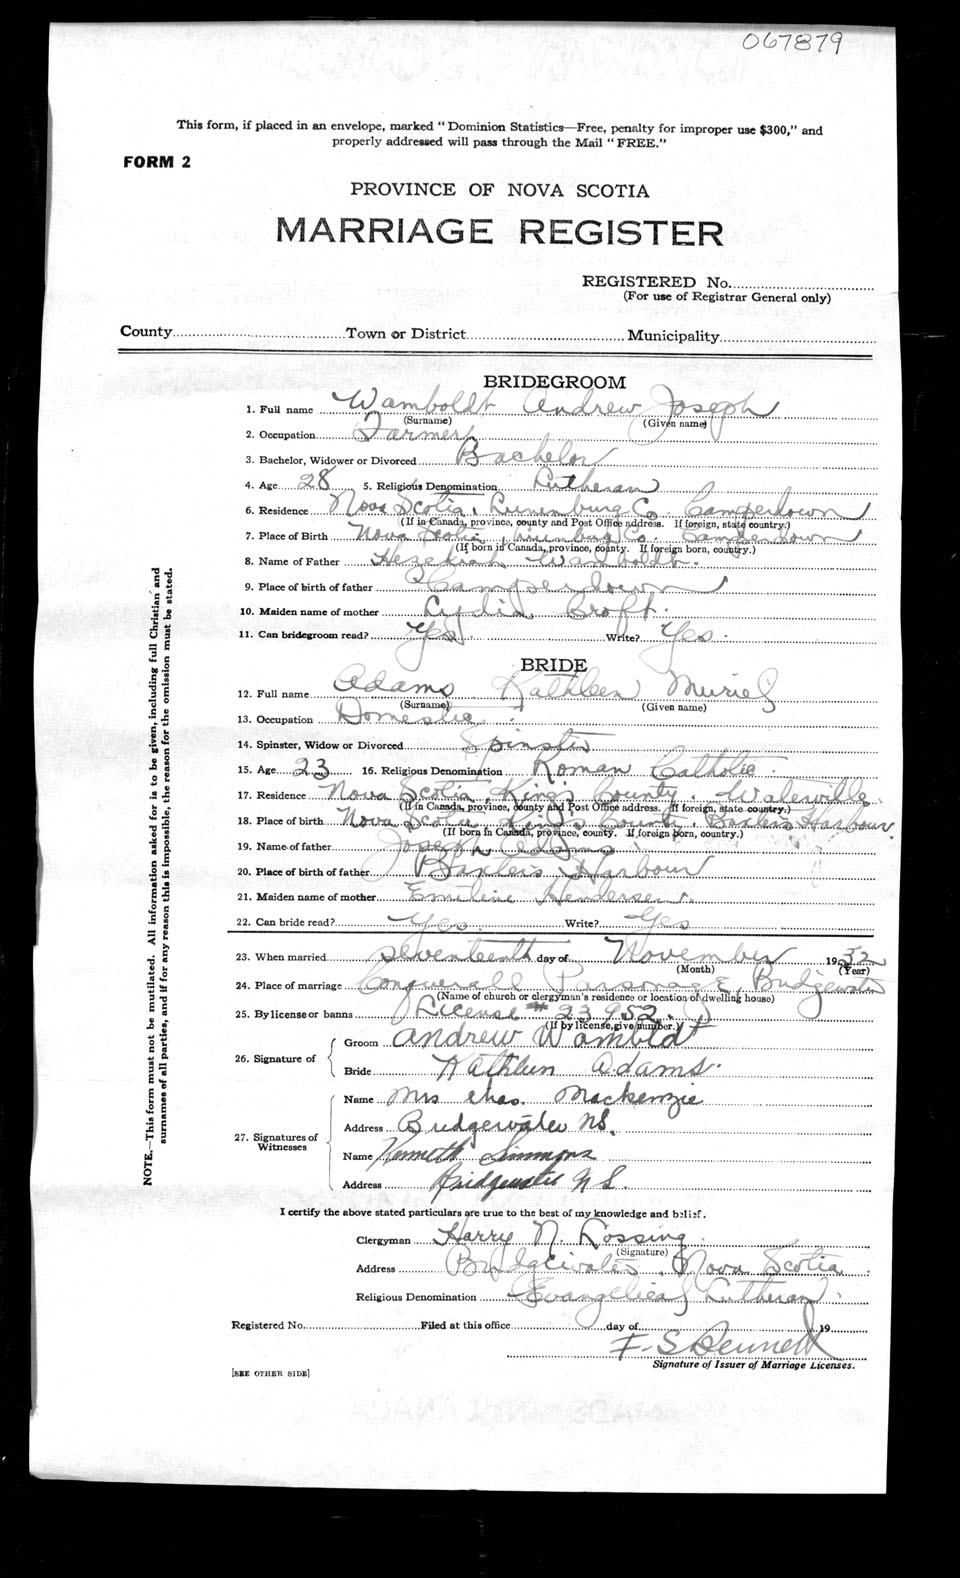 067879
This form, if placed in an envelope, marked "Dominion Statistics—Free, penalty for improper use $300," and
properly addressed will pass through the Mail "FREE."
FORM 2
PROVINCE OF NOVA SCOTIA
MARRIAGE REGISTER
REGISTERED No.
(For use of Registrar General only)
County Town or District Municipality
BRIDEGROOM
1. Full name Wamboldt Andrew Joseph
(Surname) (Given name)
2. Occupation Farmer
3. Bachelor, Widower or Divorced Bachelor
4. Age 28 5. Religious Denomination Lutheran
6. Residence Nova Scotia, Lunenburg Co. Camperdown
(If in Canada, province, county and Post Office address. If foreign, state country.)
7. Place of Birth Nova Scotia, Lunenburg Co. Camperdown
(If born in Canada, province, county. If foreign born, country.)
8. Name of Father Hezekiah Wamboldt.
9. Place of birth of father Camperdown
10. Maiden name of mother Lydia Croft.
11. Can bridegroom read? Yes. Write? Yes.
BRIDE
12. Full name Adams Kathleen Muriel
(Surname) (Given name)
13. Occupation Domestic.
14. Spinster, Widow or Divorced Spinster
15. Age 23 16. Religious Denomination Roman Catholic.
17. Residence Nova Scotia, King's County. Waterville.
(If in Canada, province, county and Post Office address. If foreign, state country.)
18. Place of birth Nova Scotia King's County. Baxters Harbour.
(If born in Canada, province, county. If foreign born, country.)
19. Name of father Joseph Adams.
20. Place of birth of father Baxters Harbour
21. Maiden name of mother Emiline Henderson.
22. Can bride read? Yes. Write? Yes
23. When married seventeenth day of November 1932
(Month) (Year)
24. Place of marriage Conquerall Parsonage, Bridgewater
(Name of church or clergyman's residence or location of dwelling house)
25. By license or banns License # 23952.
(If by license, give number.)
26. Signature of
Groom Andrew Wambldt
Bride Kathleen Adams.
27. Signatures of Witnesses
Name Mrs Chas. Mackenzie
Address Bridgewater NS.
Name Kenneth Simmons
Address Bridgewater N S.
I certify the above stated particulars are true to the best of my knowledge and belief.
Clergyman Harry N. Lossing.
(Signature)
Address Bridgewater, Nova Scotia.
Religious Denomination Evangelical Lutheran.
Registered No. Filed at this office day of 19
F. S Bennett
Signature of Issuer of Marriage Licenses.
[SEE OTHER SIDE]
NOTE.—This form must not be mutilated. All information asked for is to be given, including full Christian and
surnames of all parties, and if for any reason this is impossible, the reason for the omission must be stated.